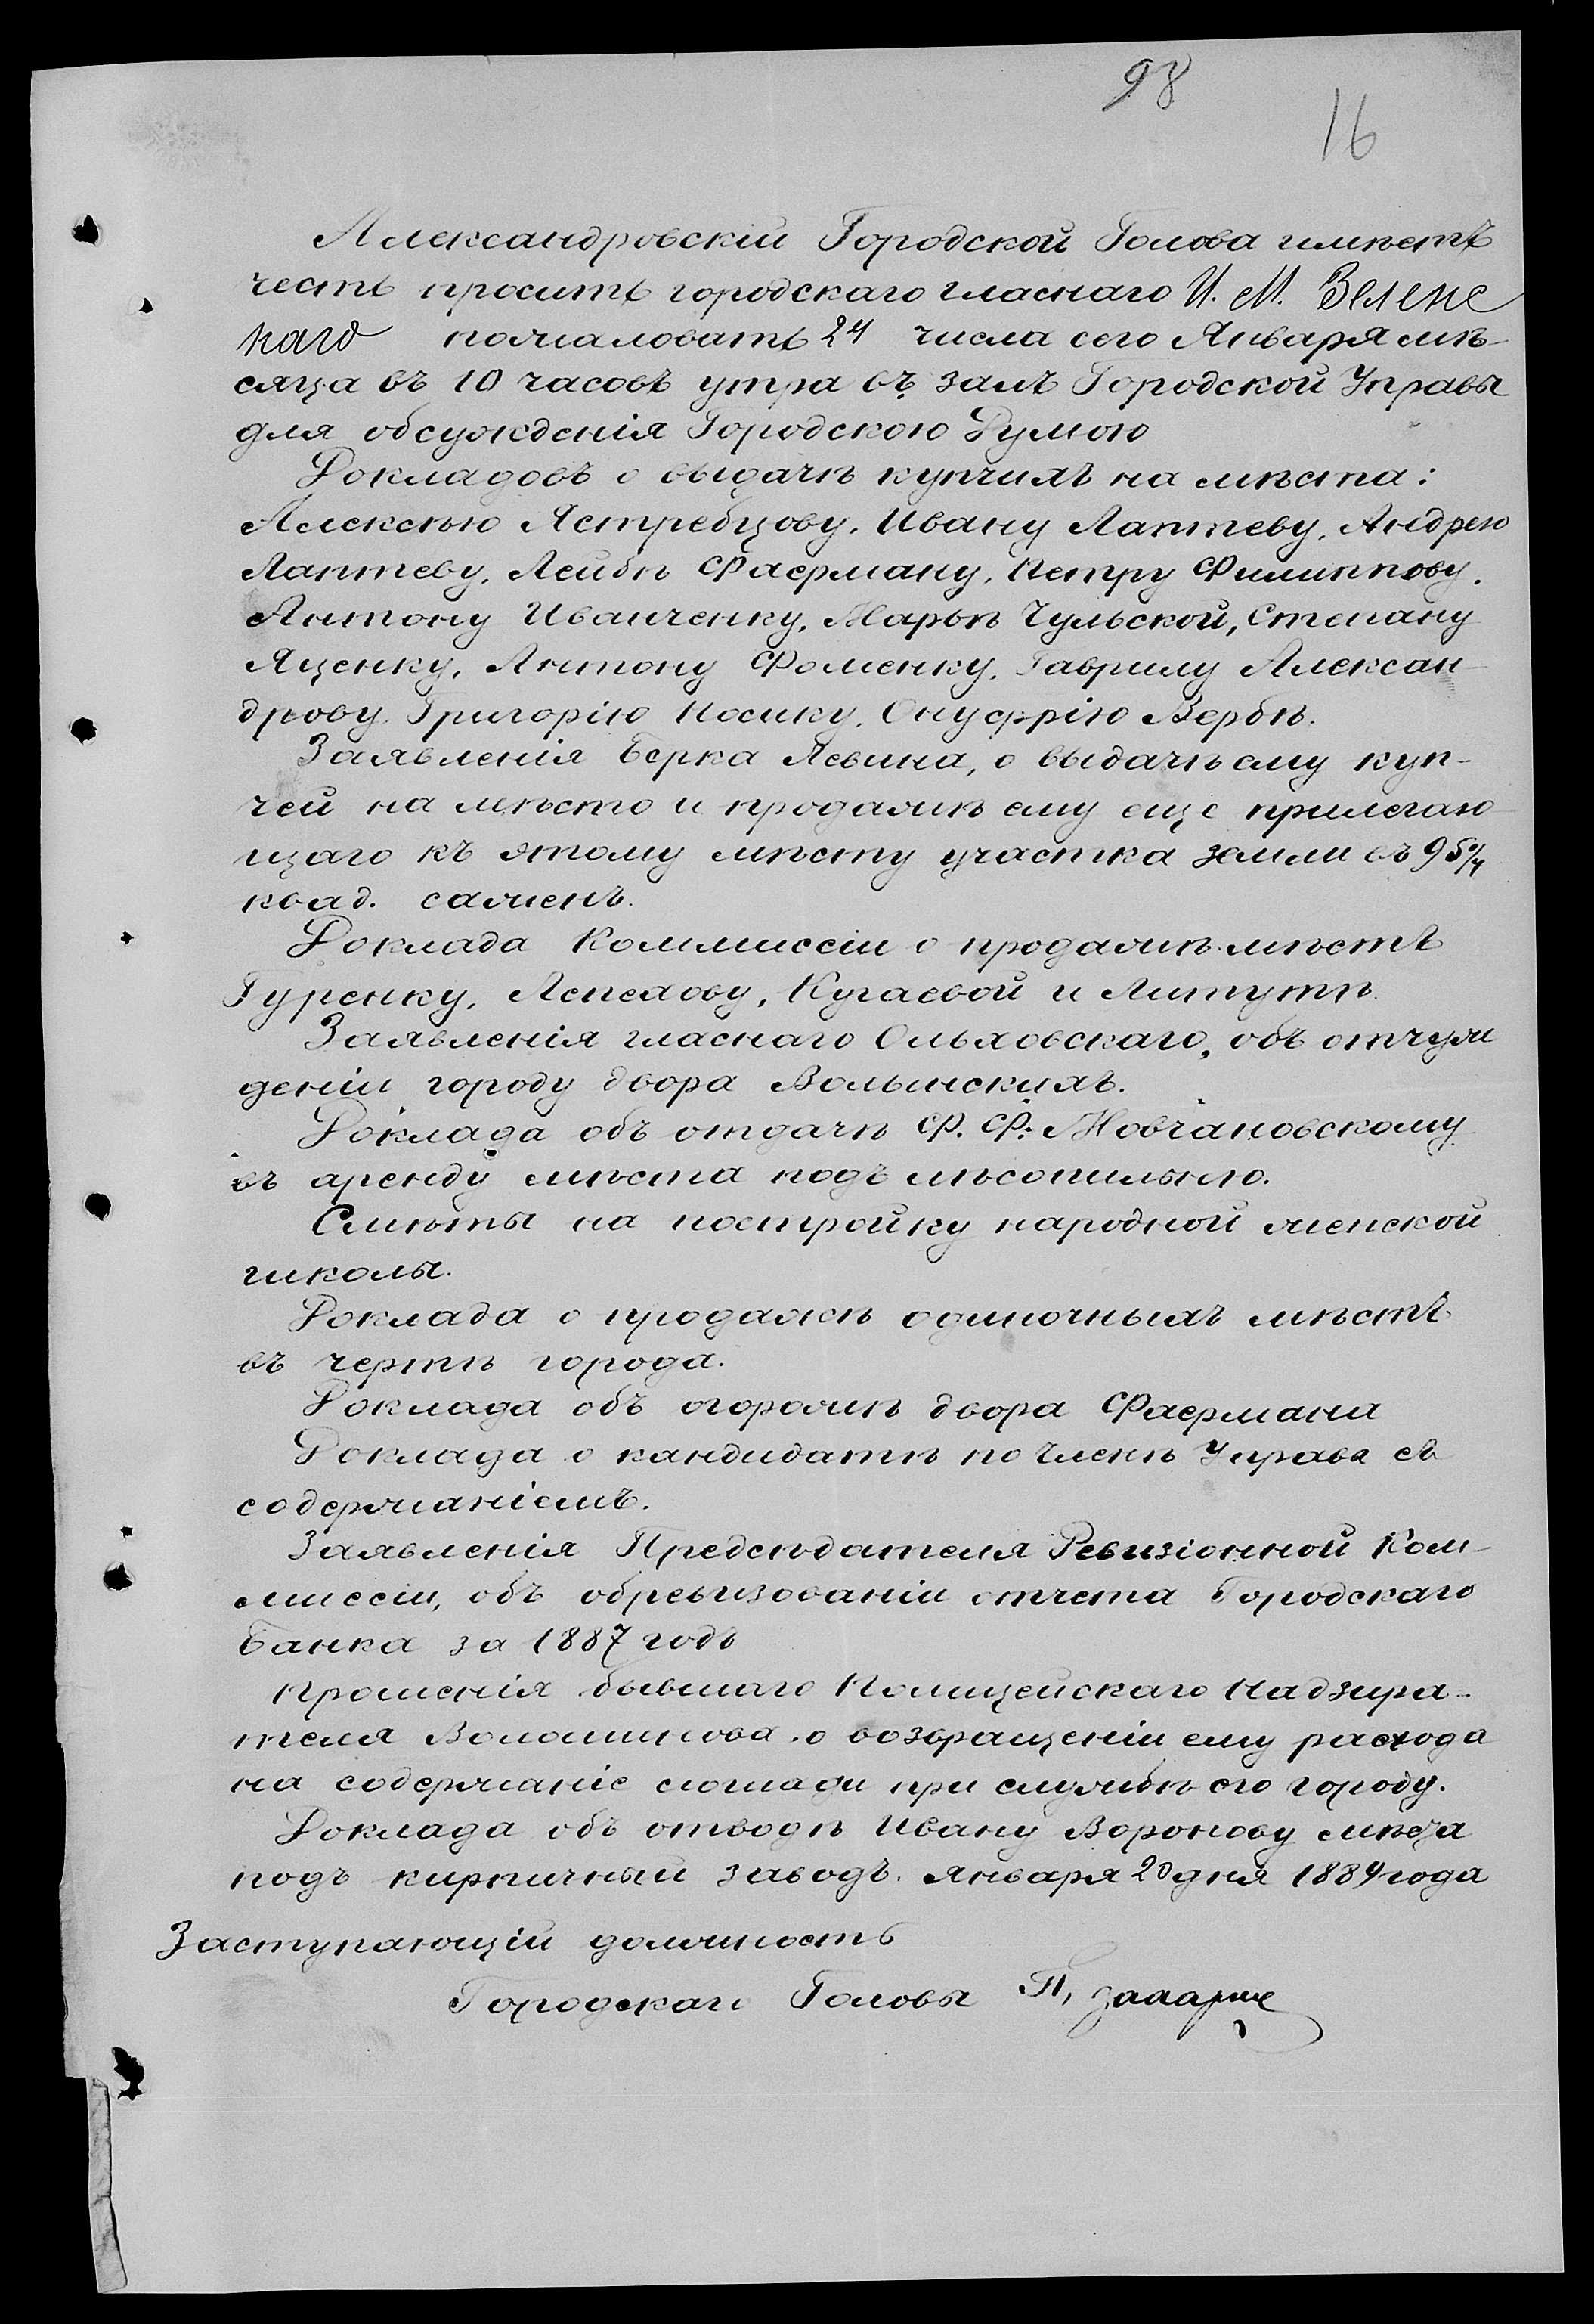 98
16
Александровскій Городской Голова имѣетъ
честь просить городскаго гласнаго И. М. Зеленс
каго пожаловать 24 числа сего Января мѣ-
сяца въ 10 часовъ утра въ залъ Городской Управы
для обсужденія Городскою Думою
Докладовъ о выдачѣ купчихъ на мѣста:
Алексѣю Ястребцову, Ивану Лаптеву, Андрею
Лаптеву, Лейбѣ Фаерману, Петру Филиппову,
Антону Иванченку, Марьѣ Чульской, Степану
Яценку, Антону Фоменку, Гаврилу Алексан-
дрову, Григорію Носику, Онуфрію Вербѣ.
Заявленія Берка Левина, о выдачѣ ему куп-
чей на мѣсто и продажѣ ему еще прилегаю
щаго къ этому мѣсту участка земли въ
квад. сажень.
Доклада Коммиссіи о продажѣ мѣстъ
Гуренку, Лепехову, Кугаевой и Литутѣ.
Заявленія гласнаго Ольховскаго, объ отчуж
деніи городу двора Волынскихъ.
Доклада объ отдачѣ Ф. Ф. Мовчановскому
въ аренду мѣста подъ лѣсопильню.
Смѣты на постройку народной женской
школы.
Доклада о продажѣ одиночныхъ мѣстъ
въ чертѣ города.
Доклада объ огорожѣ двора Фаермана
Доклада о кандидатѣ по Членѣ Управы съ
содержаніемъ.
Заявленія Предсѣдателя Ревизіонной Ком-
миссіи, объ обревизованіи отчета Городскаго
Банка за 1887 годъ
Прошенія бывшаго Полицейскаго Надзира-
теля Волошинова о возвращеніи ему расхода
на содержаніе лошади при службѣ его городу.
Доклада объ отводѣ Ивану Воронову мѣста
подъ кирпичный заводъ. Января 20 дня 1889 года
Заступающій должность
Городскаго Головы П.